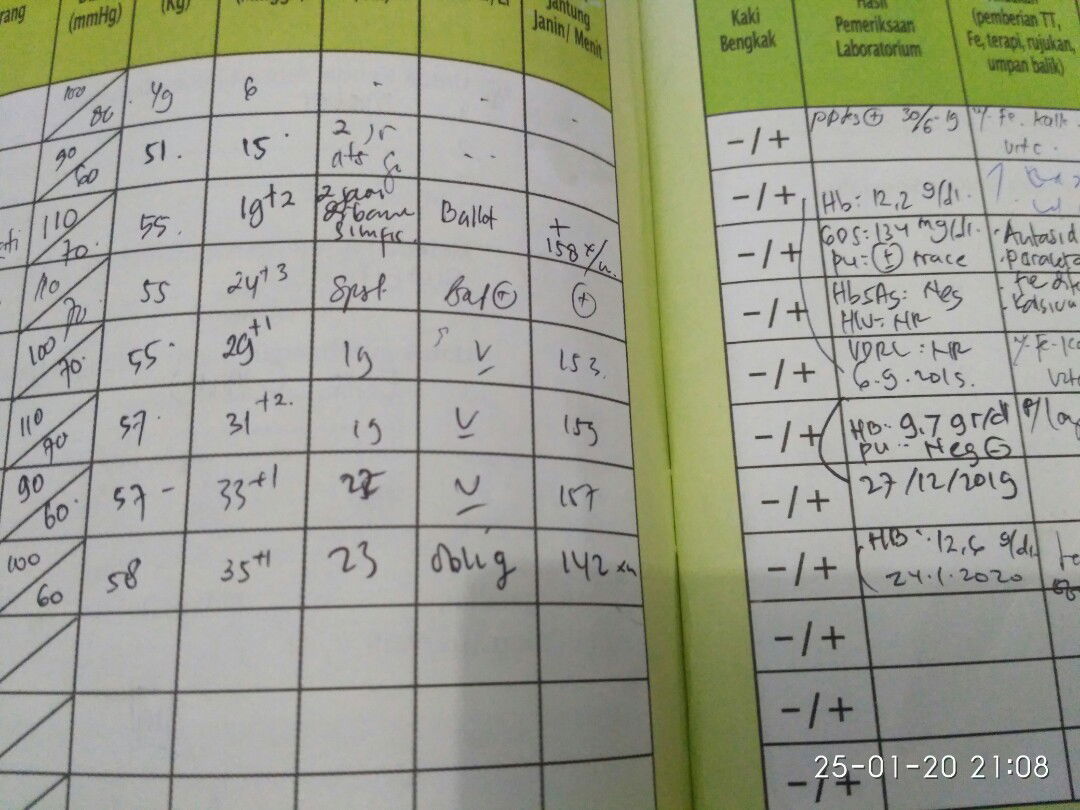 rang
(mmHg)
(Kg)
Jantung
Janin/ Menit
100
80
49
6
-
-
-
90
60
51.
15
2 jr
ats
- -
110
70
55.
19+2
Ballot
+
158 x/
110
70
55
24+3
Spst
Bal +
+
100
70
55
29+1
19
V
153
110
70
57
31+2
19
V
159
90
60
57
33+1
V
157
100
60
58
35+1
23
oblig
142
Kaki
Bengkak
Hasil
Pemeriksaan
Laboratorium
(pemberian TT,
Fe, terapi, rujukan,
umpan balik)
- / +
pptes + 30/6-19
Fe. Kalk
vit c.
- / +
Hb: 12,2 g/dl.
- / +
GDS: 134 mg/dl.
pu: + trace
Antasid
- / +
HbsAg: Neg
HIV: NR
- / +
VDRL: NR
6.9.2019.
- / +
HB: 9.7 gr/dl
pu: Neg -
- / +
27/12/2019
- / +
HB: 12,6 g/dl.
24.1.2020
- / +
- / +
- / +
25-01-20 21:08